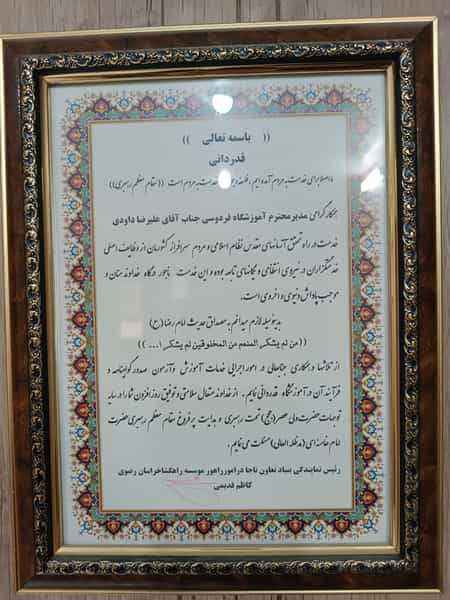 (( باسمه تعالی ))
قدردانی
ما اصلا برای خدمت به مردم آمده‌ایم ، فلسفه وجودی ما خدمت به مردم است ((مقام معظم رهبری))
همکار گرامی مدیر محترم آموزشگاه فردوسی جناب آقای علیرضا داودی
خدمت در راه تحقق آرمانهای مقدس نظام اسلامی و مردم سرافراز کشورمان از وظایف اصلی
خدمتگزاران در نیروی انتظامی و یگانهای تابعه بوده و این خدمت ماجور درگاه خداوند منان و
موجب پاداش دنیوی و اخروی است.
بدینوسیله لازم میدانم به مصداق حدیث امام رضا (ع)
((من لم یشکر المنعم من المخلوقین لم یشکر ... ))
از تلاشها و همکاری جنابعالی در امور اجرایی خدمات آموزش وآزمون صدور گواهینامه و
فرآیند آن در آموزشگاه قدردانی نمایم . از خداوند متعال سلامتی و توفیق روزافزون شما را در سایه
توجهات حضرت ولی عصر(عج) تحت رهبری و هدایت پر فروغ مقام معظم رهبری حضرت
امام خامنه ای (مدظله العالی) مسئلت می نمایم .
رئیس نمایندگی بنیاد تعاون ناجا درامورراهور موسسه راهگشاخراسان رضوی
کاظم قدیمی